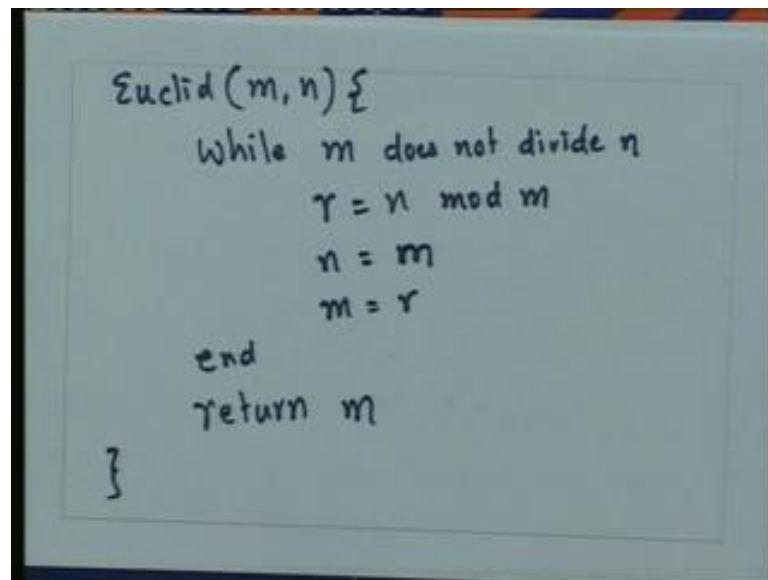 Euclid (m, n) {
While m does not divide n
r = n mod m
n = m
m = r
end
return m
}